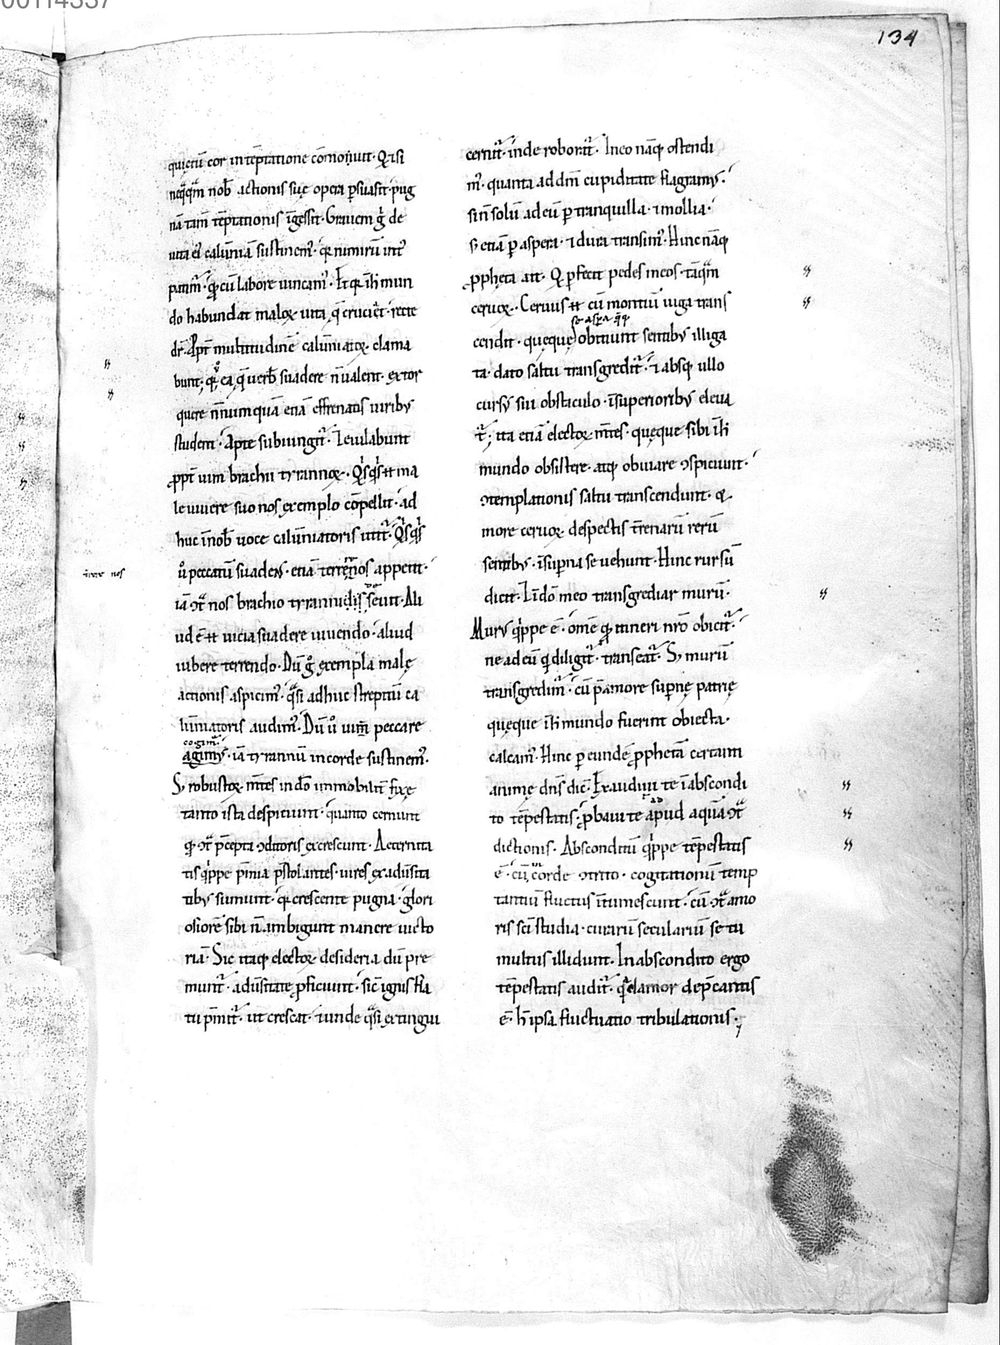 134
quietũ cor in tẽptatione cõmouit. Qasi
neq̃q̃m nob̃ actionis suę opera ꝑsuasit. pug
nã tam̃ tẽptationis ĩgessit. Grauem g̃ de
uita ei calũniã sustinem᷒. q̃ nimirũ int᷒
patim᷒. cũ labore uincam᷒. Et q̃a in h̃ mun
do habundat maloꝝ uita, q̃ cruciet. recte
dr̃. Apt̃ multitudinẽ calũniatoꝝ clama
bunt. q̃a ea q̃ uerb̃ suadere ñ ualent. extor
quere ñnumquã etiã effrenatis uirib᷒
student. Apte subiungit᷒. Ieiulabunt
ꝓpt̃ uim brachii tyrannoꝝ. Q̃sq̃s .n. ma
le uiuere suo nos exemplo cõpellit. ad
huc in nob̃ uoce calũniatoris utit᷒. Q̃sq̃s
ũ peccatũ suadens. etiã terrere nos appetit.
iã ꝯt̃ nos brachio tyrannidis seuit. Ali
ud ẽ .n. uicia suadere uiuendo. aliud
iubere terrendo. Dũ g̊ exempla malę
actionis aspicim᷒. q̃si adhuc strepitũ ca
lũniatoris audim᷒. Dũ ũ uim̃ peccare
cogim᷒
agim᷒. iã tyrannũ in corde sustinem᷒.
S; robustoꝝ m̃tes in dõ immobilit̃ fixę
tanto ista despiciunt. quanto cernunt
q̃ ꝯt̃ p̃cepta ꝯditoris excrescunt. Aeternita
tis q̃ppe p̃mia p̃stolantes. uires ex aduersita
tib᷒ sumunt. q̃a crescente pugna. glori
osiorẽ sibi ñ ambigunt manere uicto
riã. Sic itaq; electoꝝ desideria dũ pre
munt᷒. aduersitate ꝓficiunt. sic ignis fla
tu p̃mit᷒. ut crescat. ⁊ unde q̃si extingui
cernit᷒. inde roborat᷒. In eo nãq; ostendi
m᷒. quanta ad dm̃ cupiditate flagram᷒.
si ñ solũ ad eũ ꝑ tranquilla. ⁊ mollia.
s; etiã ꝑ aspera. ⁊ dura transim᷒. Hinc nãq;
ꝓpheta ait. Q ꝑfecit pedes meos. tãq̃m
ceruoꝝ. Ceruus .n. cũ montiũ iuga trans
se aspa q̃q;
cendit. queque obtinunt sentib᷒ illiga
ta. dato saltu transgredit᷒. ⁊ absq; ullo
cursus sui obstaculo. ĩ superiorib᷒ eleua
t᷒. ita etiã electoꝝ m̃tes. quęque sibi in h̃
mundo obsistere. atq; obuiare ꝯspiciunt.
ꝯtemplationis saltu transcendunt. &
more ceruoꝝ despectis terrenarũ rerũ
sentib᷒. ĩ supna se uehunt. Hinc rursũ
dicit. In dõ meo transgrediar murũ.
Murus q̃ppe ẽ. om̃e q̃ itineri nr̃o obicit᷒.
ne ad eũ q̃ diligit᷒. transeat᷒. S; murũ
transgredim᷒. cũ p̃ amore supnę patrię
quęque in h̃ mundo fuerint obiecta.
calcam᷒. Hinc ꝑ eundẽ ꝓphetã certanti
animę dñs dic̃. Exaudiui te in abscondi
to tẽpestatis. ꝓbaui te apud aquã ꝯt̃
dictionis. Absconditũ q̃ppe tẽpestatis
ẽ. cũ in corde ꝯtrito. cogitationũ temp
tantiũ fluctus ĩtumescunt. cũ ꝯt̃ amo
ris sc̃i studia. curarũ seculariũ se tu
multus illidunt. In abscondito ergo
tẽpestatis audit᷒. q̃a clamor dep̃cantis
ẽ. h̃ ipsa fluctuatio tribulationis.